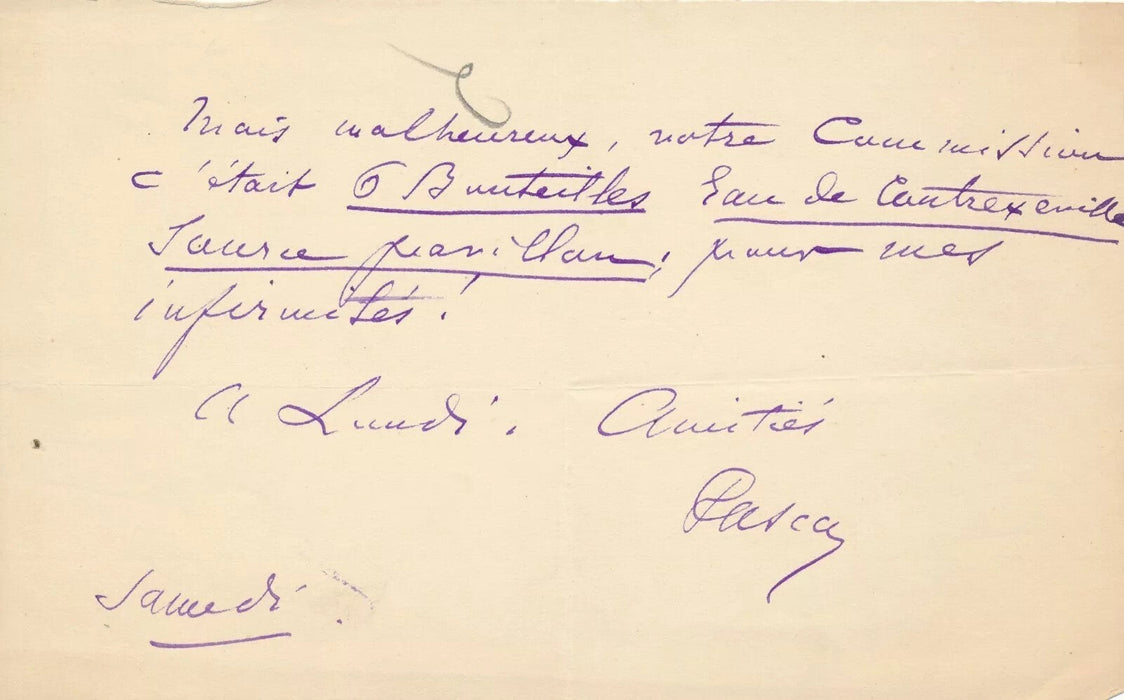 Mais malheureux, notre Commission
c'était 6 Bouteilles Eau de Contrexeville
Source pavillon, pour mes
infirmités !
A Lundi. Amitiés
Pasca
Samedi.